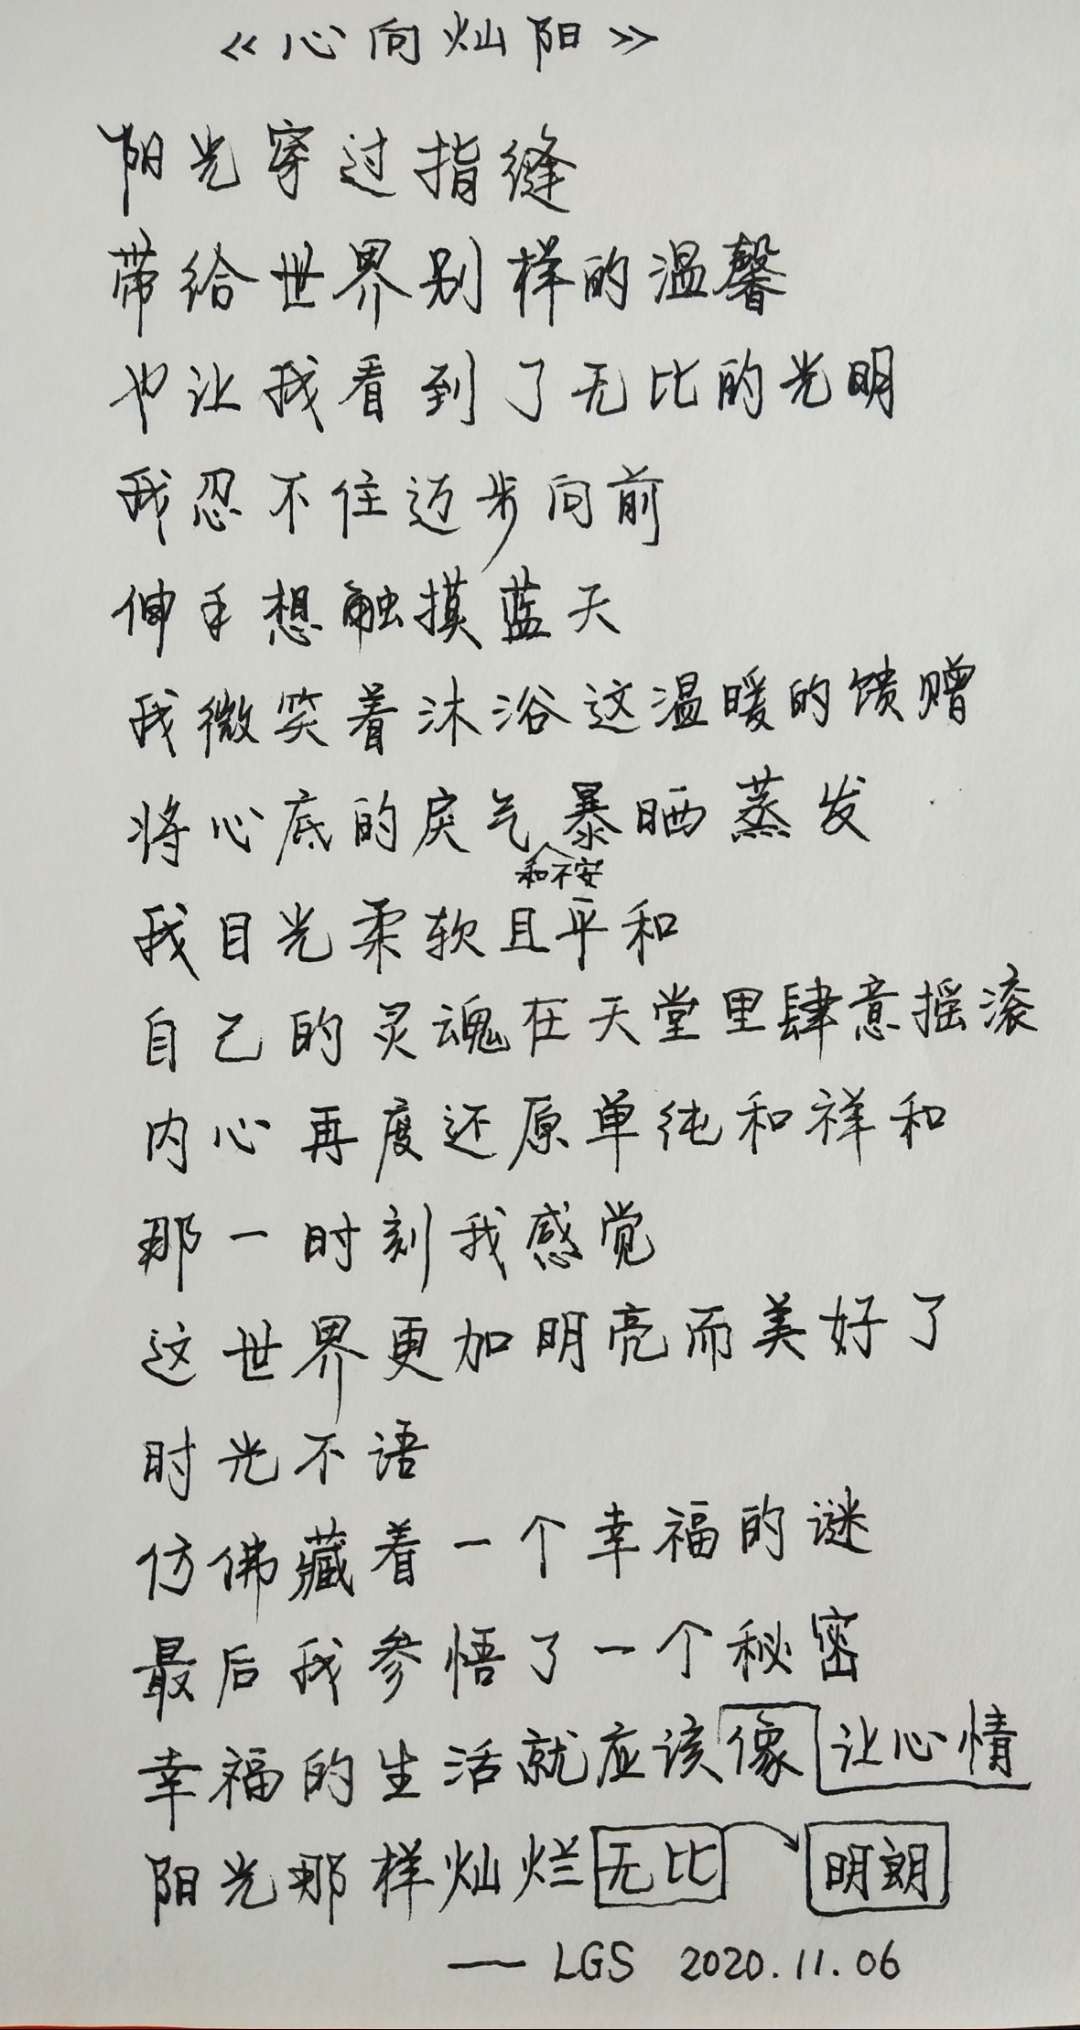 《心向灿阳》
阳光穿过指缝
带给世界别样的温馨
也让我看到了无比的光明
我忍不住迈步向前
伸手想触摸蓝天
我微笑着沐浴这温暖的馈赠
将心底的戾气暴晒蒸发
和不安
我目光柔软且平和
自己的灵魂在天堂里肆意摇滚
内心再度还原单纯和祥和
那一时刻我感觉
这世界更加明亮而美好了
时光不语
仿佛藏着一个幸福的谜
最后我参悟了一个秘密
幸福的生活就应该像 让心情
阳光那样灿烂无比 明朗
—— LGS 2020.11.06